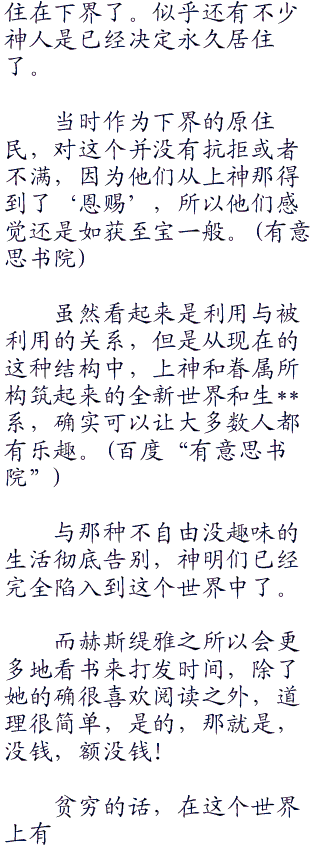 住在下界了。似乎还有不少
神人是已经决定永久居住
了。
当时作为下界的原住
民，对这个并没有抗拒或者
不满，因为他们从上神那得
到了‘恩赐’，所以他们感
觉还是如获至宝一般。(有意
思书院)
虽然看起来是利用与被
利用的关系，但是从现在的
这种结构中，上神和眷属所
构筑起来的全新世界和生**
系，确实可以让大多数人都
有乐趣。(百度“有意思书
院”)
与那种不自由没趣味的
生活彻底告别，神明们已经
完全陷入到这个世界中了。
而赫斯缇雅之所以会更
多地看书来打发时间，除了
她的确很喜欢阅读之外，道
理很简单，是的，那就是，
没钱，额没钱!
贫穷的话，在这个世界
上有